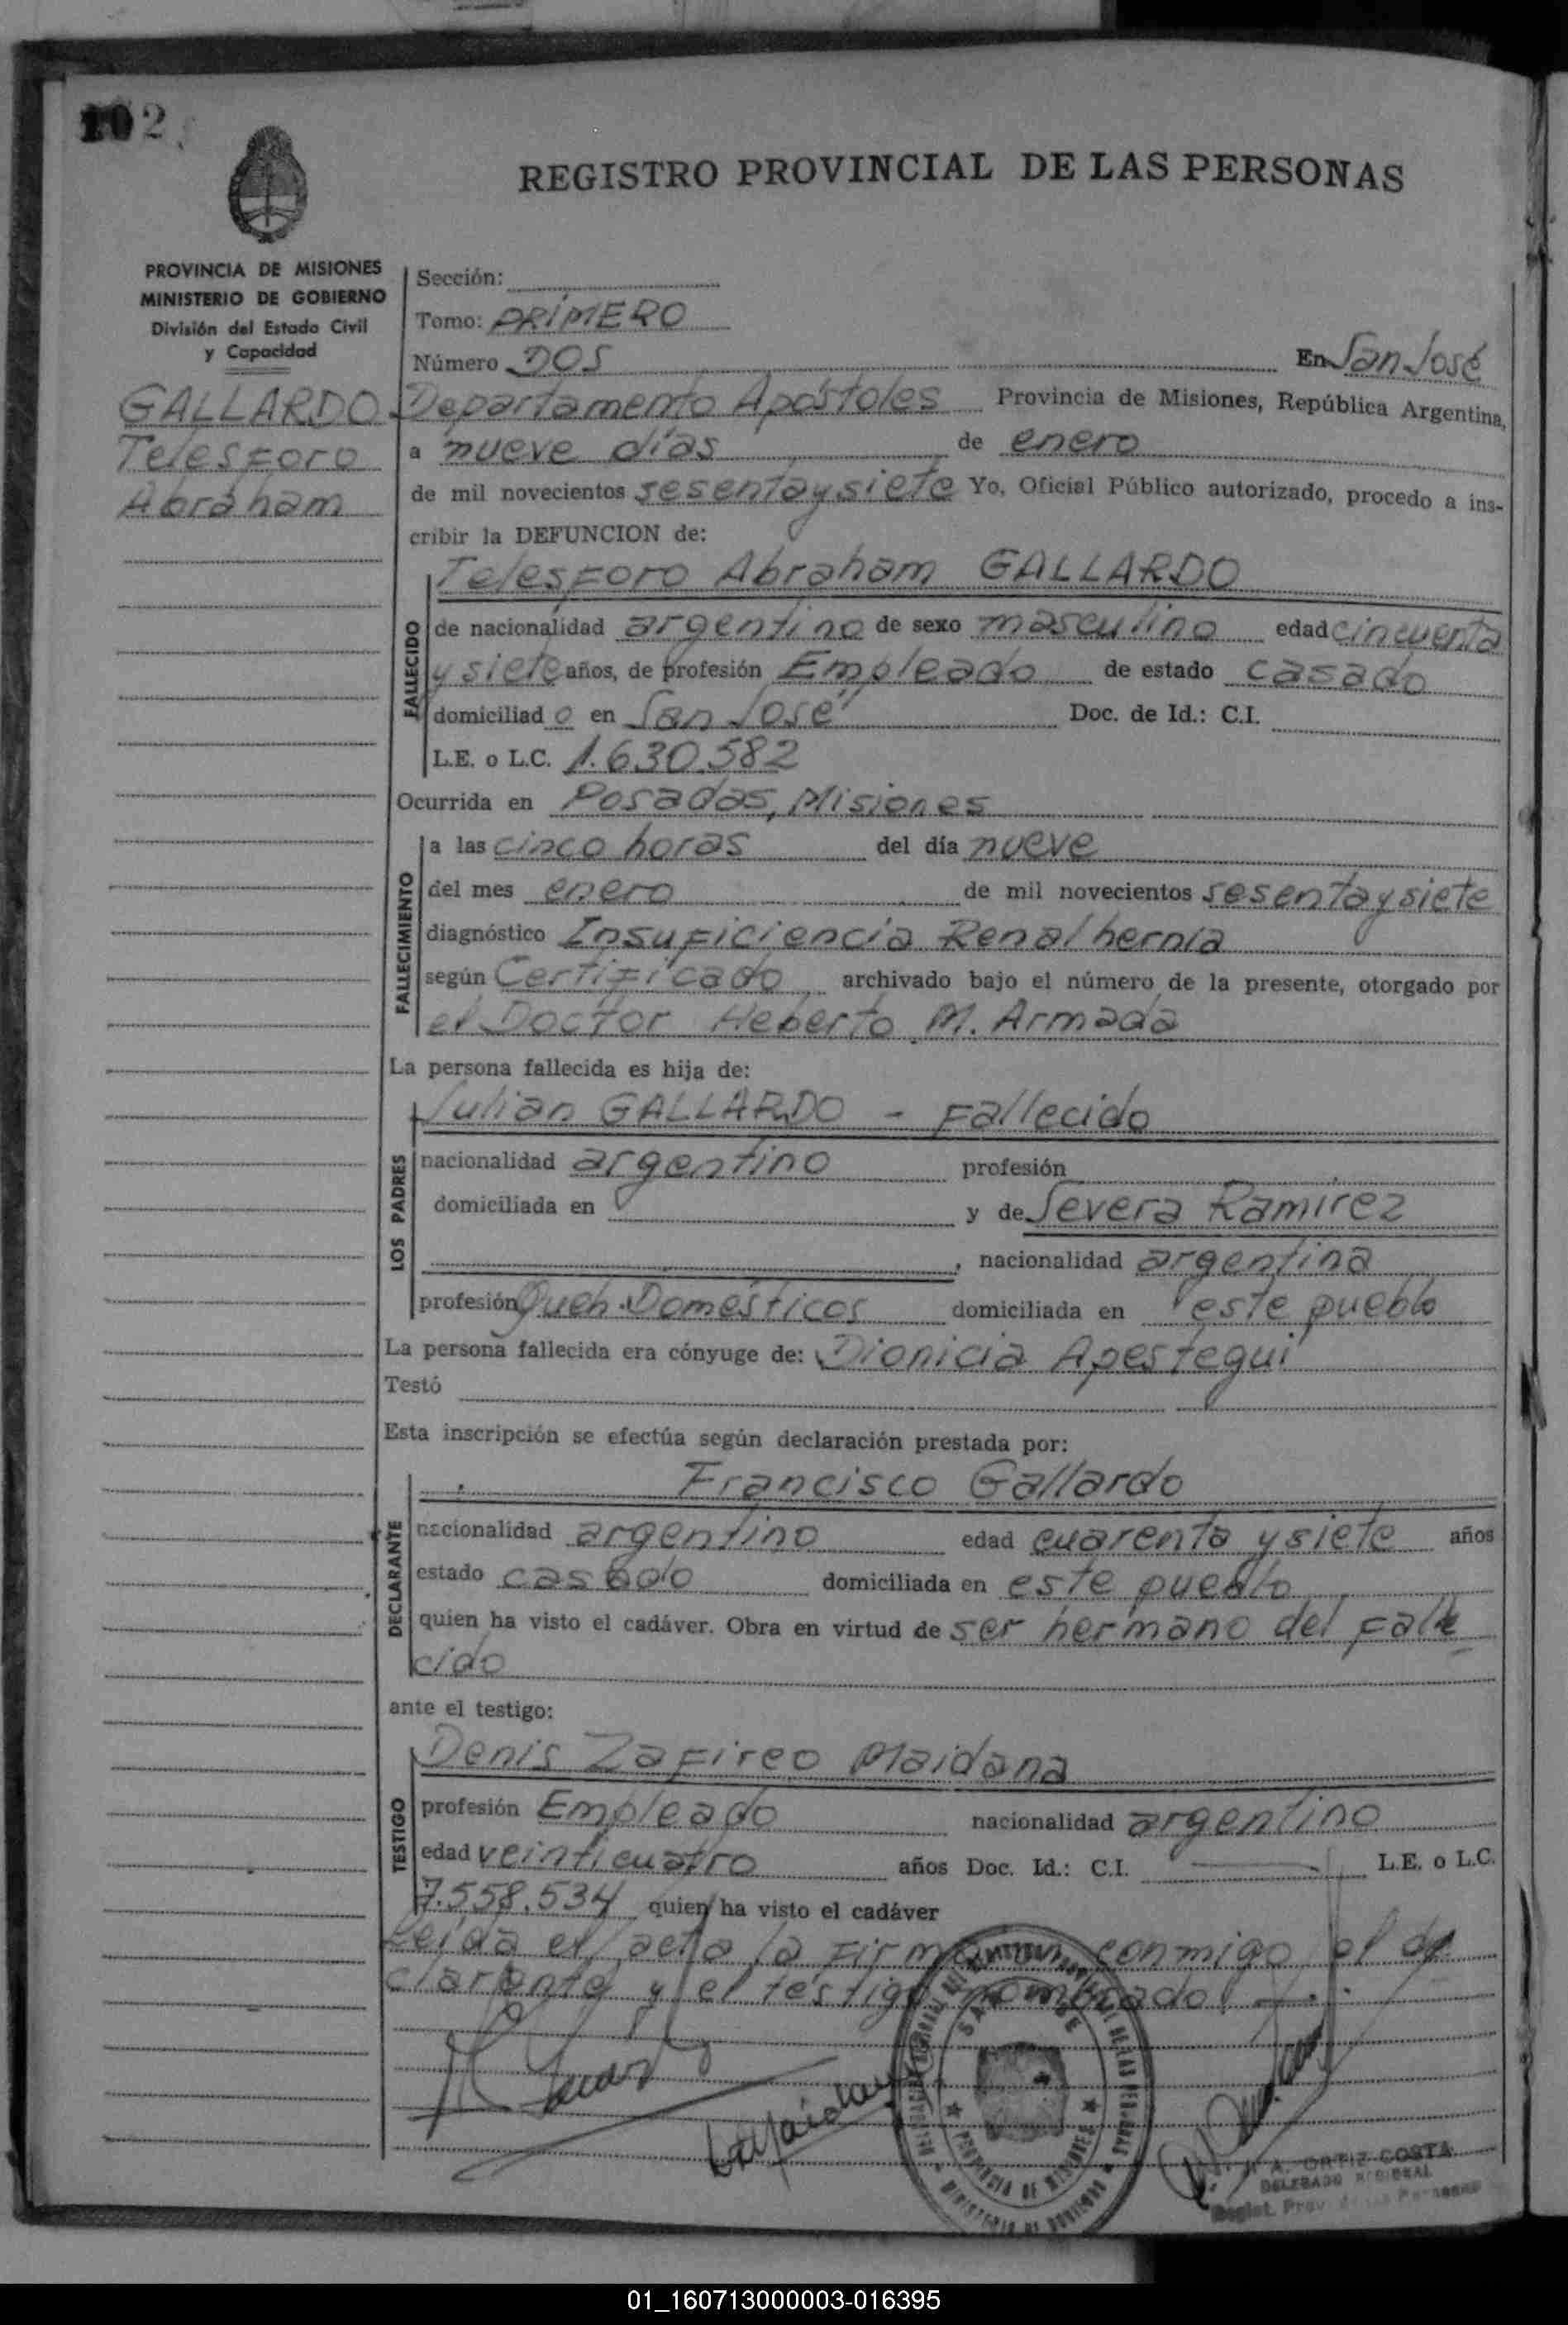 102
REGISTRO PROVINCIAL DE LAS PERSONAS
PROVINCIA DE MISIONES
MINISTERIO DE GOBIERNO
División del Estado Civil
y Capacidad
GALLARDO
Telesforo
Abraham
Sección:
Tomo: PRIMERO
Número DOS En San José
Departamento Apóstoles Provincia de Misiones, República Argentina,
a nueve días de enero
de mil novecientos sesenta y siete Yo, Oficial Público autorizado, procedo a ins-
cribir la DEFUNCION de:
Telesforo Abraham GALLARDO
FALLECIDO
de nacionalidad argentino de sexo masculino edad cincuenta
y siete años, de profesión Empleado de estado casado
domiciliad o en San José Doc. de Id.: C.I.
L.E. o L.C. 1.630.582
Ocurrida en Posadas, Misiones
FALLECIMIENTO
a las cinco horas del día nueve
del mes enero de mil novecientos sesenta y siete
diagnóstico Insuficiencia Renal hernia
según Certificado archivado bajo el número de la presente, otorgado por
el Doctor Heberto M. Armada
La persona fallecida es hija de:
Julian GALLARDO - Fallecido
LOS PADRES
nacionalidad argentino profesión
domiciliada en y de Severa Ramirez
, nacionalidad argentina
profesión Queh. Domésticos domiciliada en este pueblo
La persona fallecida era cónyuge de: Dionicia Apestegui
Testó
Esta inscripción se efectúa según declaración prestada por:
Francisco Gallardo
DECLARANTE
nacionalidad argentino edad cuarenta y siete años
estado casado domiciliada en este pueblo
quien ha visto el cadáver. Obra en virtud de ser hermano del falle
cido
ante el testigo:
Denis Zafireo Maidana
TESTIGO
profesión Empleado nacionalidad argentino
edad veinticuatro años Doc. Id.: C.I. L.E. o L.C.
7.558.534 quien ha visto el cadáver
Leída el acta la firman conmigo el de
clarante y el testigo nombrado
SAN JOSE
PROVINCIA DE MISIONES
MINISTERIO DE GOBIERNO
A. ORTIZ COSTA
DELEGADO REGIONAL
Regist. Prov. de las Personas
01_160713000003-016395